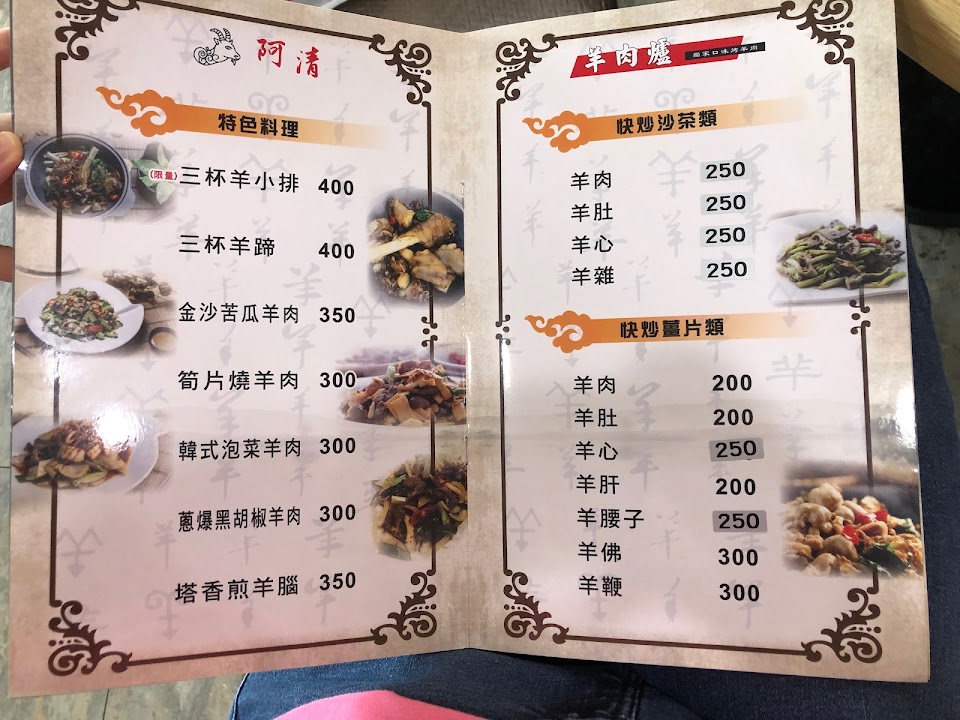 阿清
特色料理
(限量)三杯羊小排 400
三杯羊蹄 400
金沙苦瓜羊肉 350
筍片燒羊肉 300
韓式泡菜羊肉 300
蔥爆黑胡椒羊肉 300
塔香煎羊腦 350
羊肉爐 獨家口味烤羊肉
快炒沙茶類
羊肉 250
羊肚 250
羊心 250
羊雜 250
快炒薑片類
羊肉 200
羊肚 200
羊心 250
羊肝 200
羊腰子 250
羊佛 300
羊鞭 300